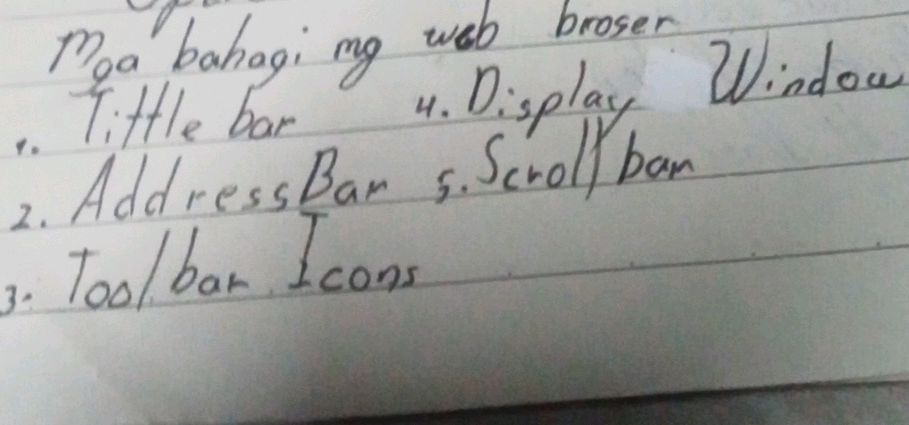 Mga bahagi ng web broser
1. Tittle bar 4. Display Window
2. Address Bar 5. Scroll bar
3. Toolbar Icons